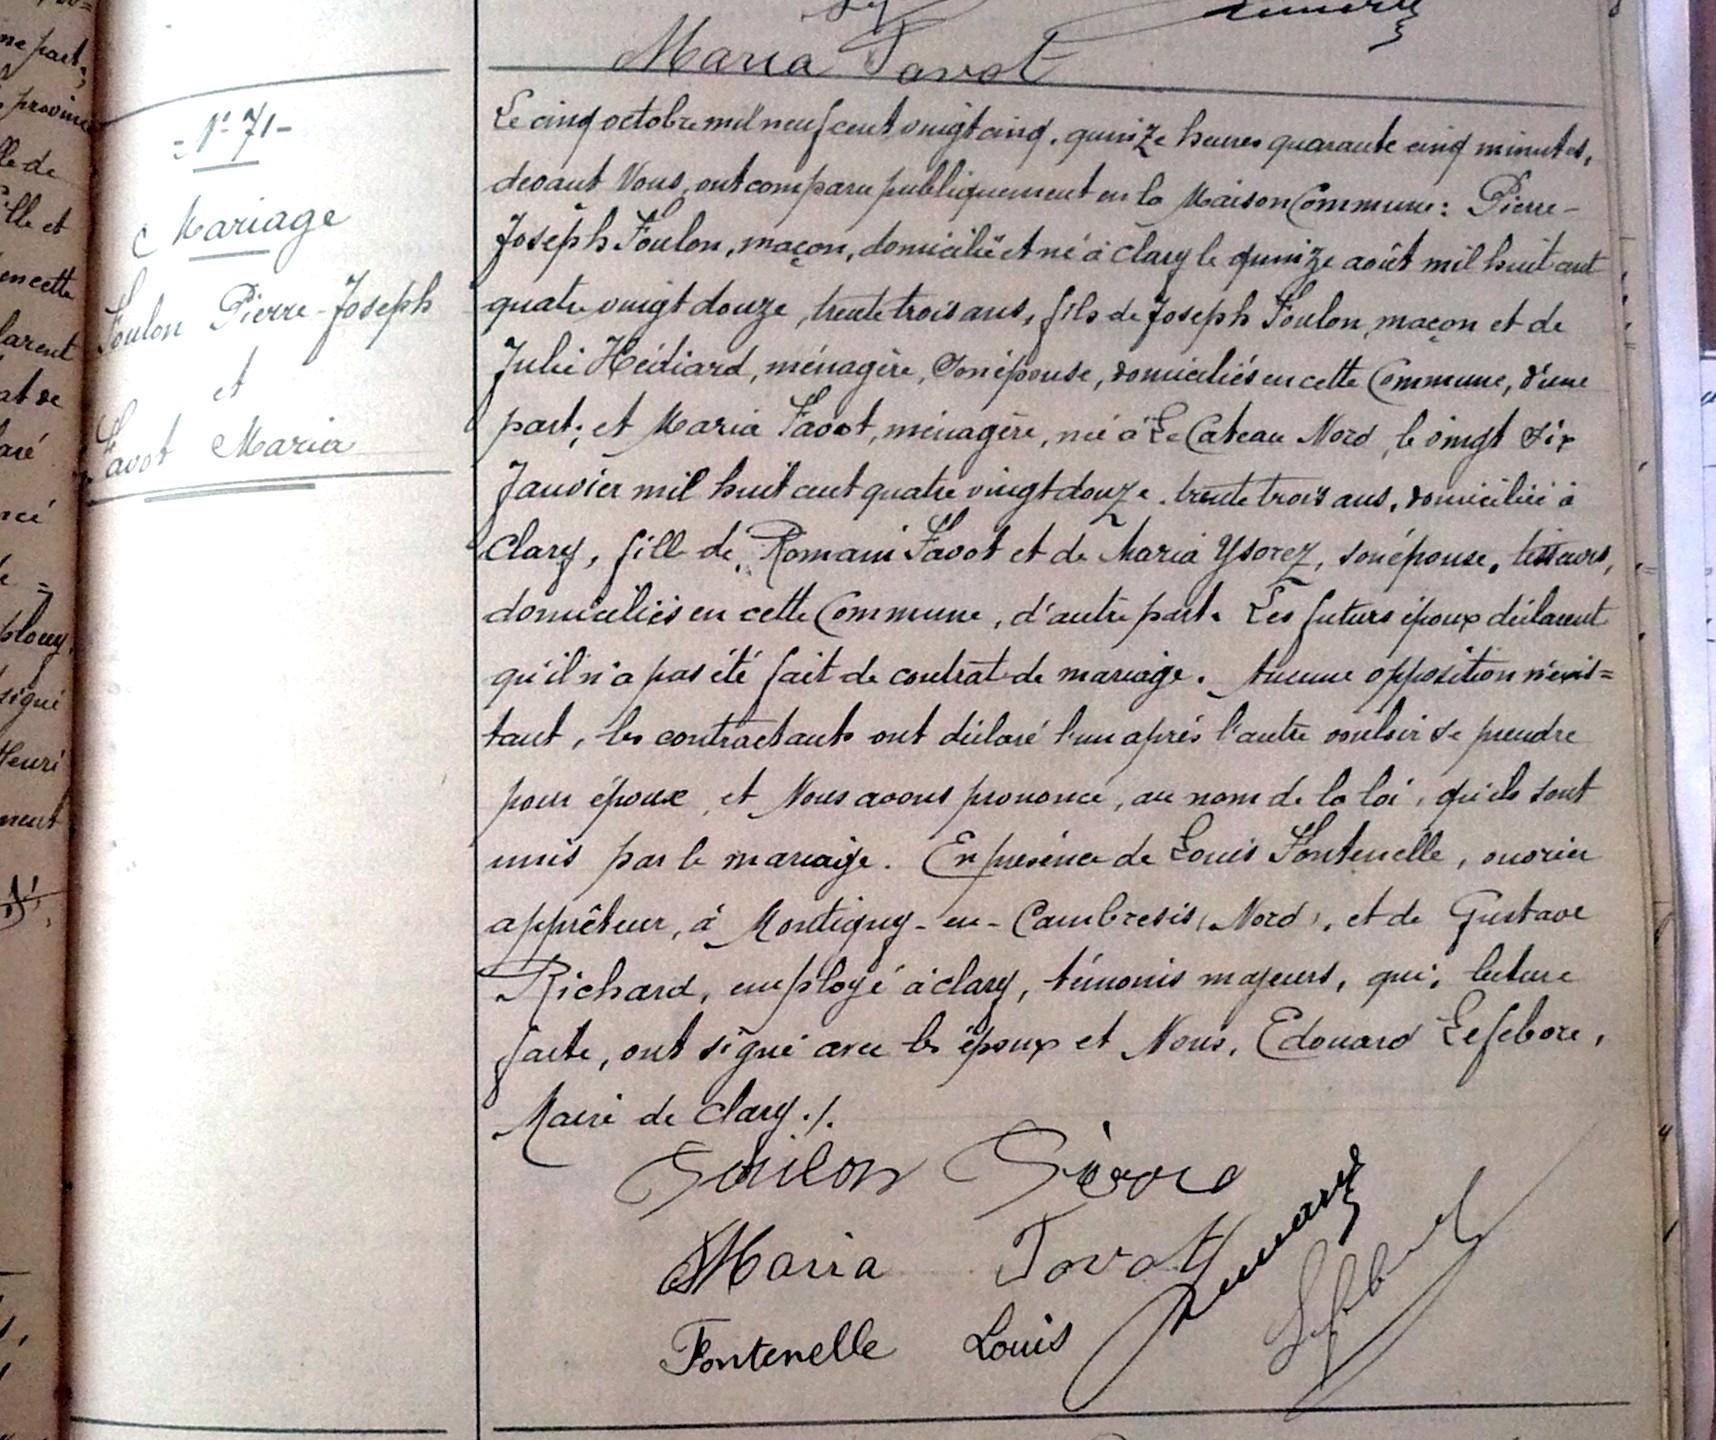 Maria Favot
- N° 71 -
Mariage
Foulon Pierre-Joseph
et
Favot Maria
Le cinq octobre mil neuf cent vingt cinq, quinze heures quarante cinq minutes,
devant Nous, ont comparu publiquement en la Maison Commune : Pierre-
Joseph Foulon, maçon, domicilié et né à Clary le quinze août mil huit cent
quatre vingt douze, trente trois ans, fils de Joseph Foulon, maçon et de
Julie Hédiard, ménagère, son épouse, domiciliés en cette Commune, d'une
part ; et Maria Favot, ménagère, née à Le Cateau Nord, le vingt six
Janvier mil huit cent quatre vingt douze, trente trois ans, domiciliée à
Clary, fille de Romain Favot et de Maria Ysorez, son épouse, tisseurs,
domiciliés en cette Commune, d'autre part. Les futurs époux déclarent
qu'il n'a pas été fait de contrat de mariage. Aucune opposition n'exis=
tant, les contractants ont déclaré l'un après l'autre vouloir se prendre
pour époux, et Nous avons prononcé, au nom de la loi, qu'ils sont
unis par le mariage. En présence de Louis Fontenelle, ouvrier
apprêteur, à Montigny-en-Cambresis (Nord), et de Gustave
Richard, employé à Clary, témoins majeurs, qui, lecture
faite, ont signé avec les époux et Nous, Edouard Lefebvre,
Maire de Clary ./.
Foulon Pierre
Maria Favot
Fontenelle Louis